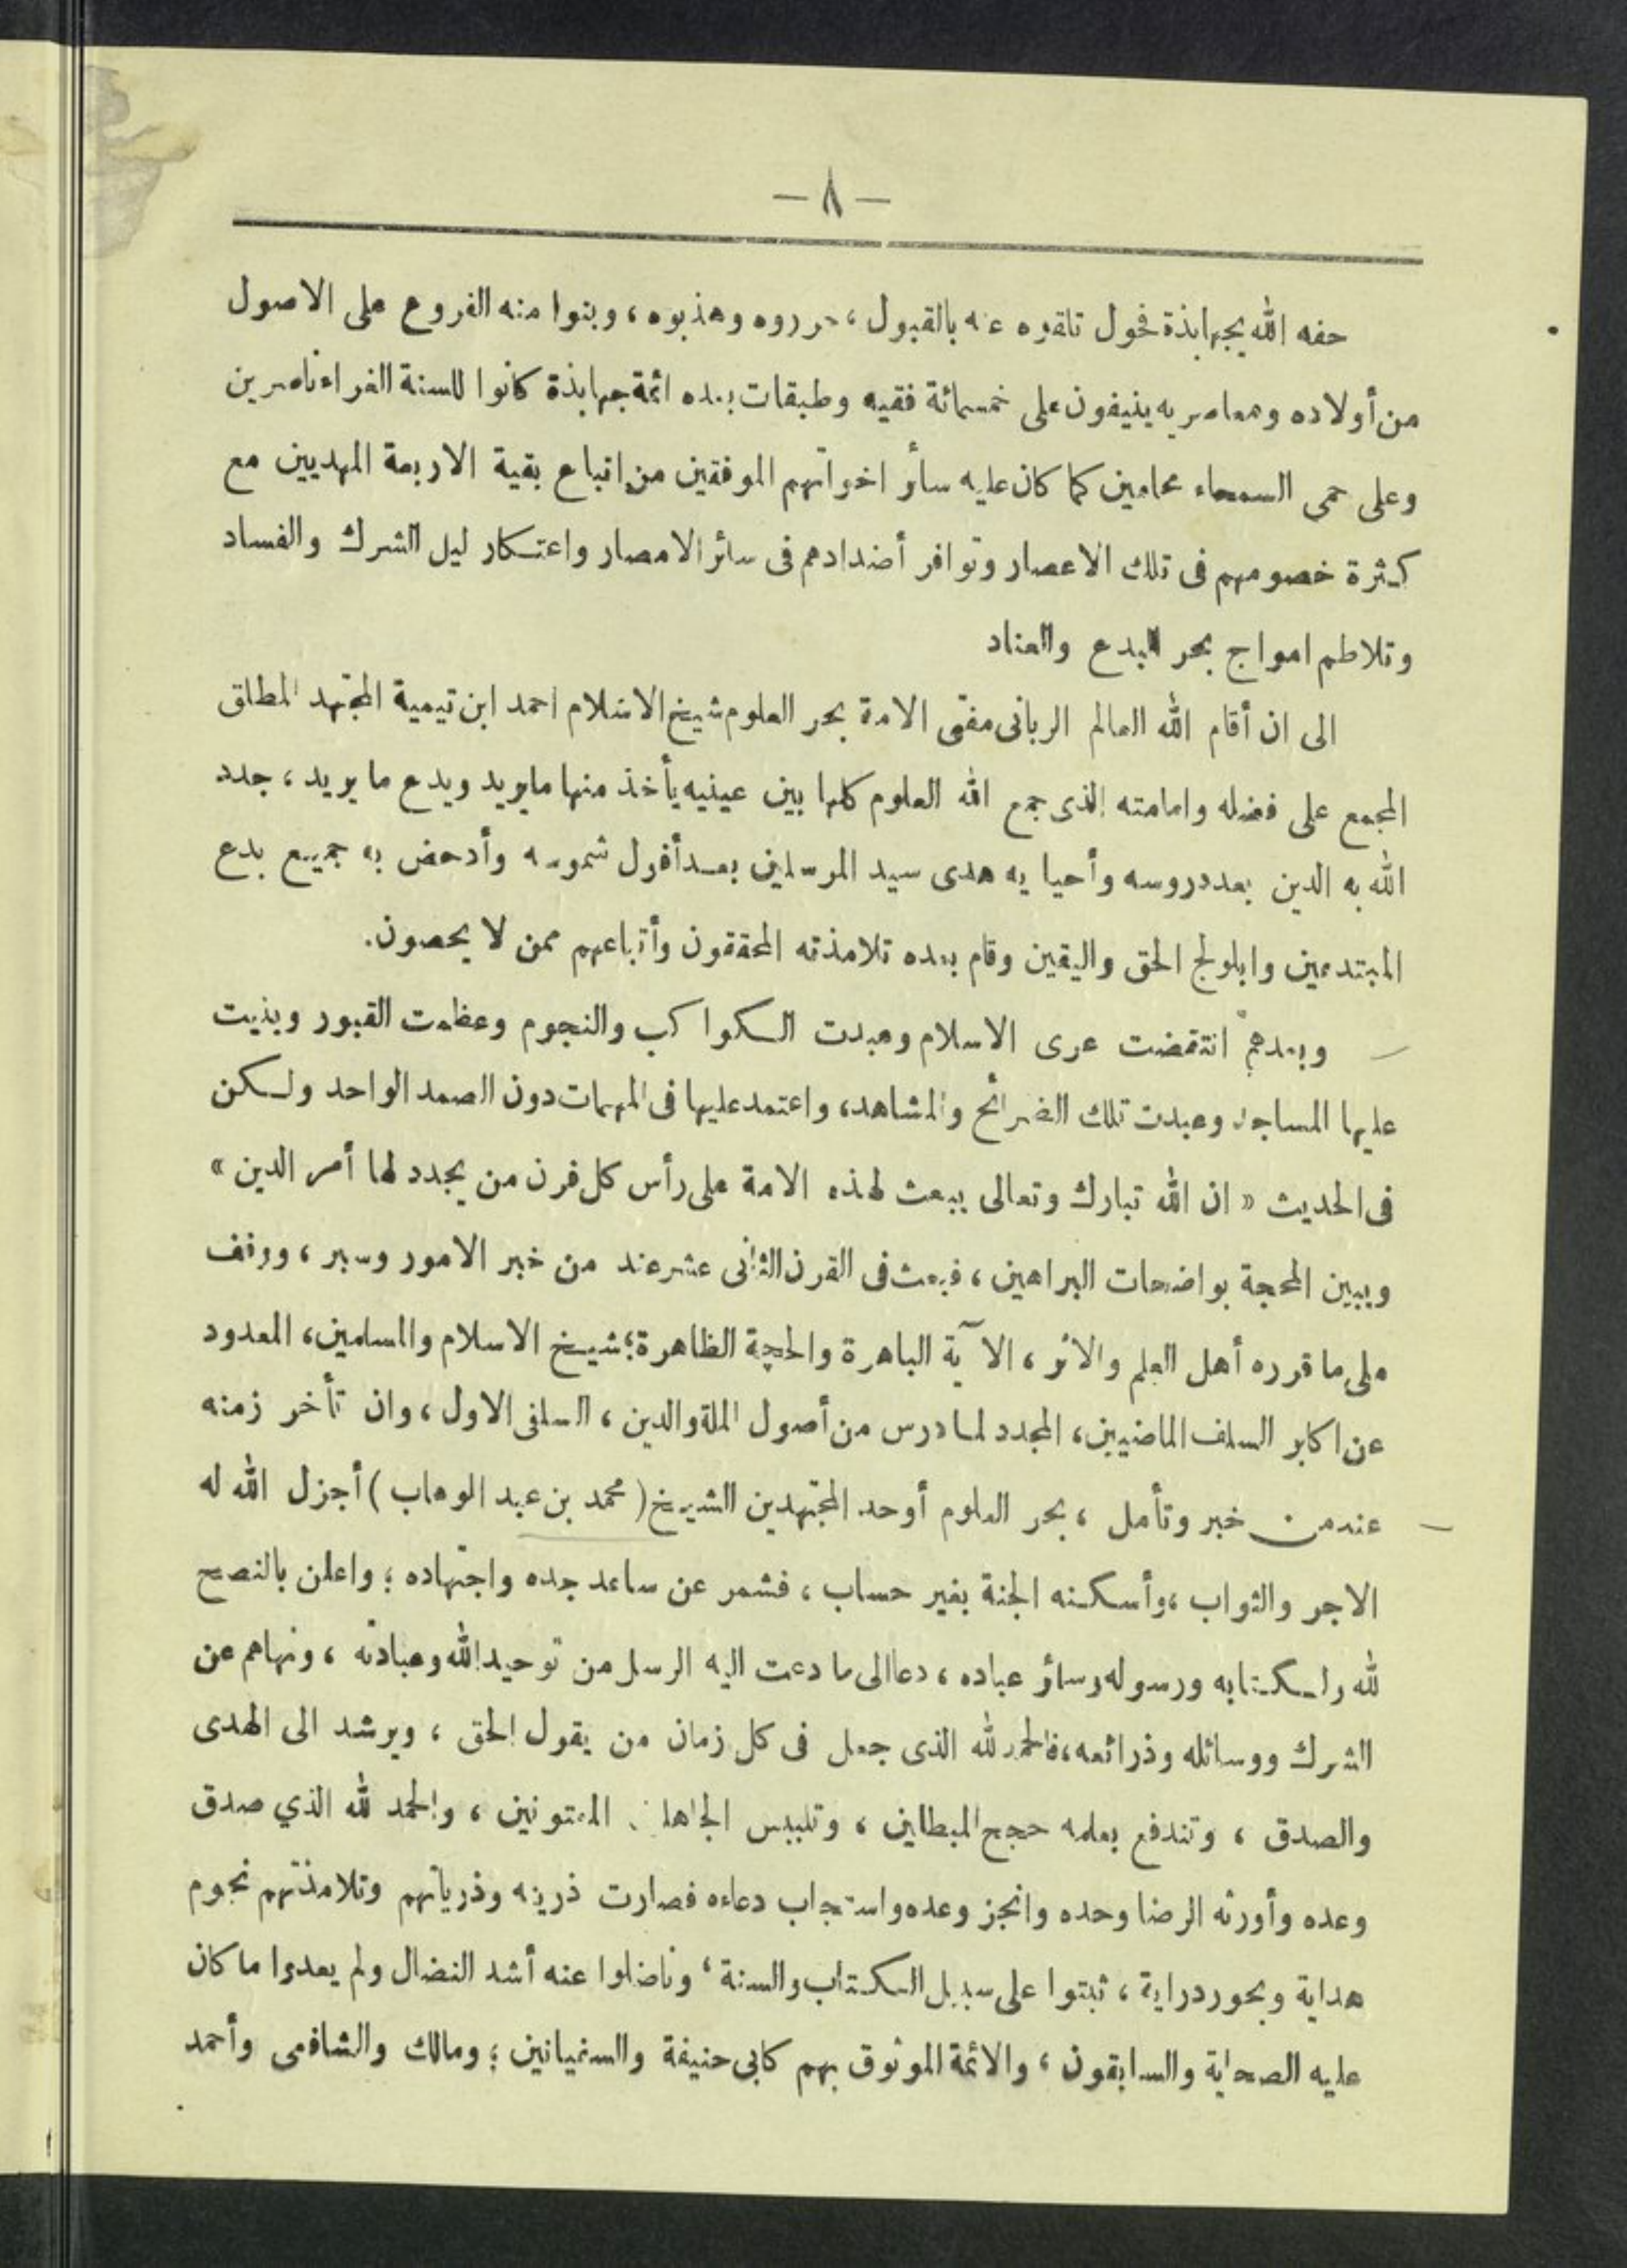 — ٨ —
حفه الله بجهابذة فحول تلقوه عنه بالقبول، حرروه وهذبوه، وبنوا منه الفروع على الاصول
من أولاده ومعاصريه ينيفون على خمسمائة فقيه وطبقات بعده ائمة جهابذة كانوا للسنة الغراء ناصرين
وعلى حمى السمحاء محامين كما كان عليه سائر اخوانهم الموفقين من اتباع بقية الاربعة المهديين مع
كثرة خصومهم فى تلك الاعصار وتوافر أضدادهم فى سائر الامصار واعتكار ليل الشرك والفساد
وتلاطم امواج بحر البدع والعناد
الى ان أقام الله العالم الربانى مفتى الامة بحر العلوم شيخ الاسلام احمد ابن تيمية المجتهد المطلق
المجمع على فضله وامامته الذى جمع الله العلوم كلها بين عينيه يأخذ منها مايريد ويدع ما يريد، جدد
الله به الدين بعد دروسه وأحيا به هدى سيد المرسلين بعد أفول شموسه وأدحض به جميع بدع
المبتدعين وابلولج الحق واليقين وقام بعده تلامذته المحققون وأتباعهم ممن لا يحصون.
وبعدهم انتقضت عرى الاسلام وعبدت الكواكب والنجوم وعظمت القبور وبنيت
عليها المساجد وعبدت تلك الضرائح والمشاهد، واعتمد عليها فى المهمات دون الصمد الواحد ولكن
فى الحديث « ان الله تبارك وتعالى يبعث لهذه الامة على رأس كل قرن من يجدد لها أمر الدين »
ويبين المحجة بواضحات البراهين، فبعث فى القرن الثانى عشر عند من خبر الامور وسبر، ووقف
على ما قرره أهل العلم والاثر، الآية الباهرة والحجة الظاهرة؛ شيخ الاسلام والمسلمين، المعدود
عن اكابر السلف الماضيين، المجدد لما درس من أصول الملة والدين، السلفى الاول، وان تأخر زمنه
عند من خبر وتأمل، بحر العلوم أوحد المجتهدين الشيخ (محمد بن عبد الوهاب) أجزل الله له
الاجر والثواب، وأسكنه الجنة بغير حساب، فشمر عن ساعد جده واجتهاده؛ واعلن بالنصح
لله ولكتابه ورسوله وسائر عباده، دعا الى ما دعت اليه الرسل من توحيد الله وعبادته، ونهاهم عن
الشرك ووسائله وذرائعه، فالحمد لله الذى جعل فى كل زمان من يقول الحق، ويرشد الى الهدى
والصدق، وتندفع بعلمه حجج المبطلين، وتلبيس الجاهلين المفتونين، والحمد لله الذي صدق
وعده وأورثه الرضا وحده وانجز وعده واستجاب دعاءه فصارت ذريته وذرياتهم وتلامذتهم نجوم
هداية وبحور دراية، ثبتوا على سبيل الكتاب والسنة، وناضلوا عنه أشد النضال ولم يعدوا ما كان
عليه الصحابة والسابقون، والائمة الموثوق بهم كابى حنيفة والسفيانين؛ ومالك والشافعى وأحمد